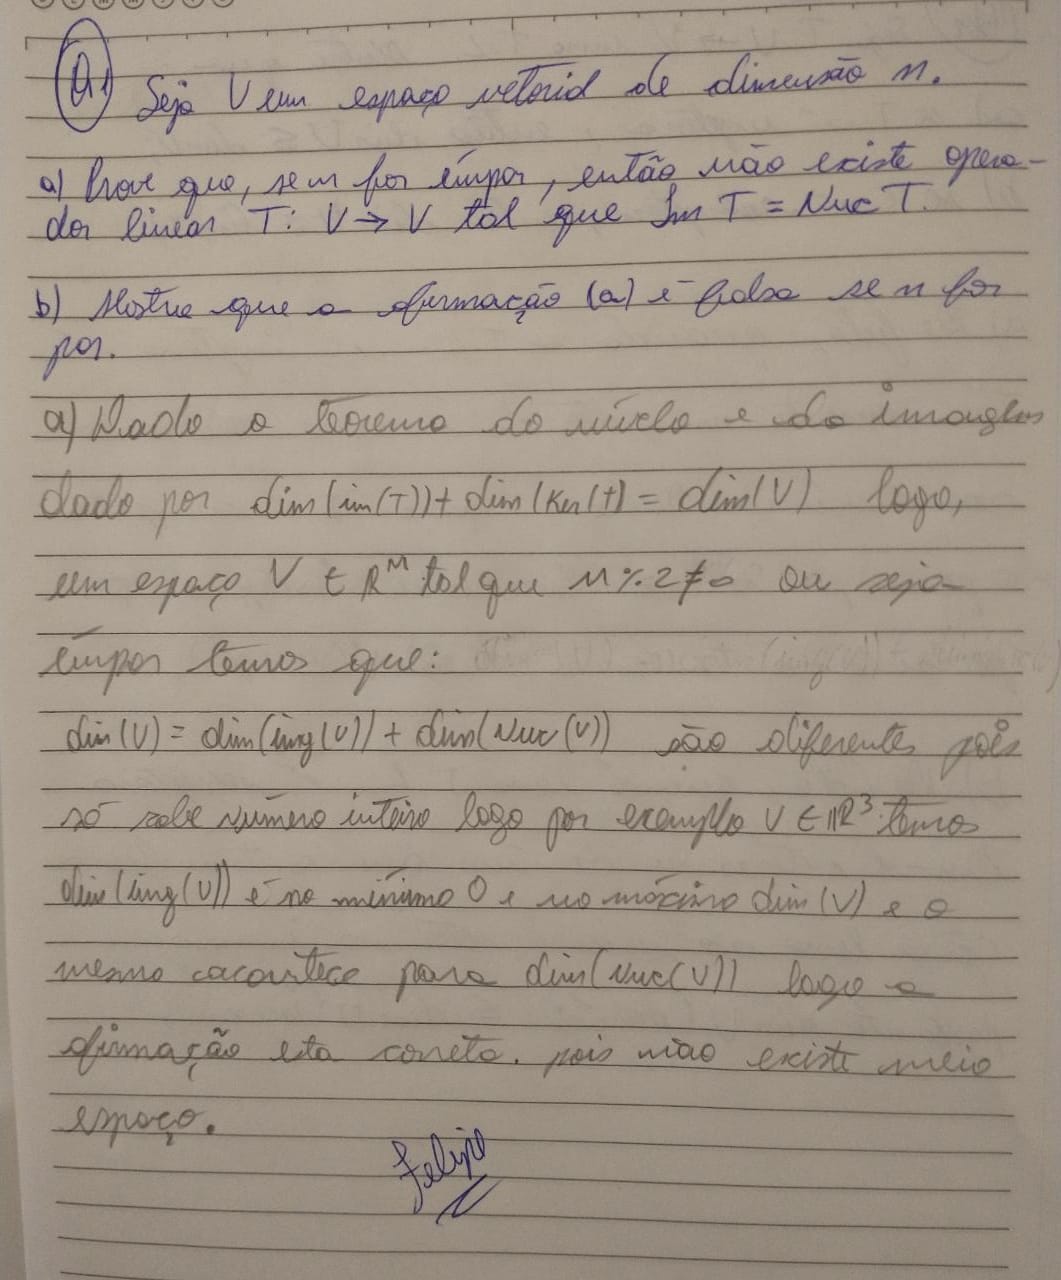 Q1 Seja V um espaço vetorial de dimensão n.
a) Prove que, se n for ímpar, então não existe opera-
dor linear T: V → V tal que Im T = Nuc T.
b) Mostre que a afirmação (a) é falsa se n for
par.
a) Dado o teorema do núclo e da imagem
dado por dim(im(T)) + dim(Ker(t) = dim(V) logo,
um espaço V ∈ R^M tal que n % 2 ≠ 0 ou seja
ímpar temos que:
dim(V) = dim(img(V)) + dim(Nuc(V)) são diferentes pois
só sobe número inteiro logo por exemplo V ∈ ℝ³ temos
dim(img(V)) é no mínimo 0 e no máximo dim(V) e o
mesmo cacontece para dim(Nuc(V)) logo a
afirmação esta correta. pois não existe meio
espaço.
Felipe